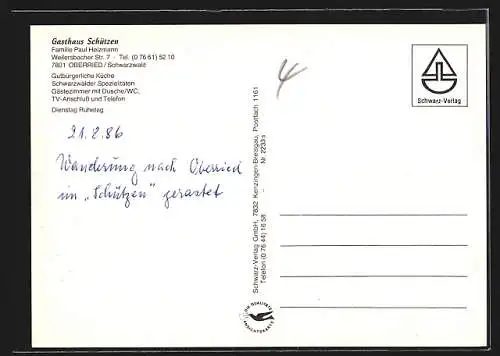 Gasthaus Schützen
Familie Paul Heizmann
Weilersbacher Str. 7 · Tel. (0 76 61) 52 10
7801 OBERRIED / Schwarzwald
Gutbürgerliche Küche
Schwarzwälder Spezialitäten
Gästezimmer mit Dusche/WC,
TV-Anschluß und Telefon
Dienstag Ruhetag
21.8.86
Wanderung nach Oberried
im „Schützen" gerastet
4
Schwarz-Verlag GmbH, 7832 Kenzingen-Breisgau, Postfach 1161
Telefon (0 76 44) 16 58
Nr. 2233 s
Schwarz-Verlag